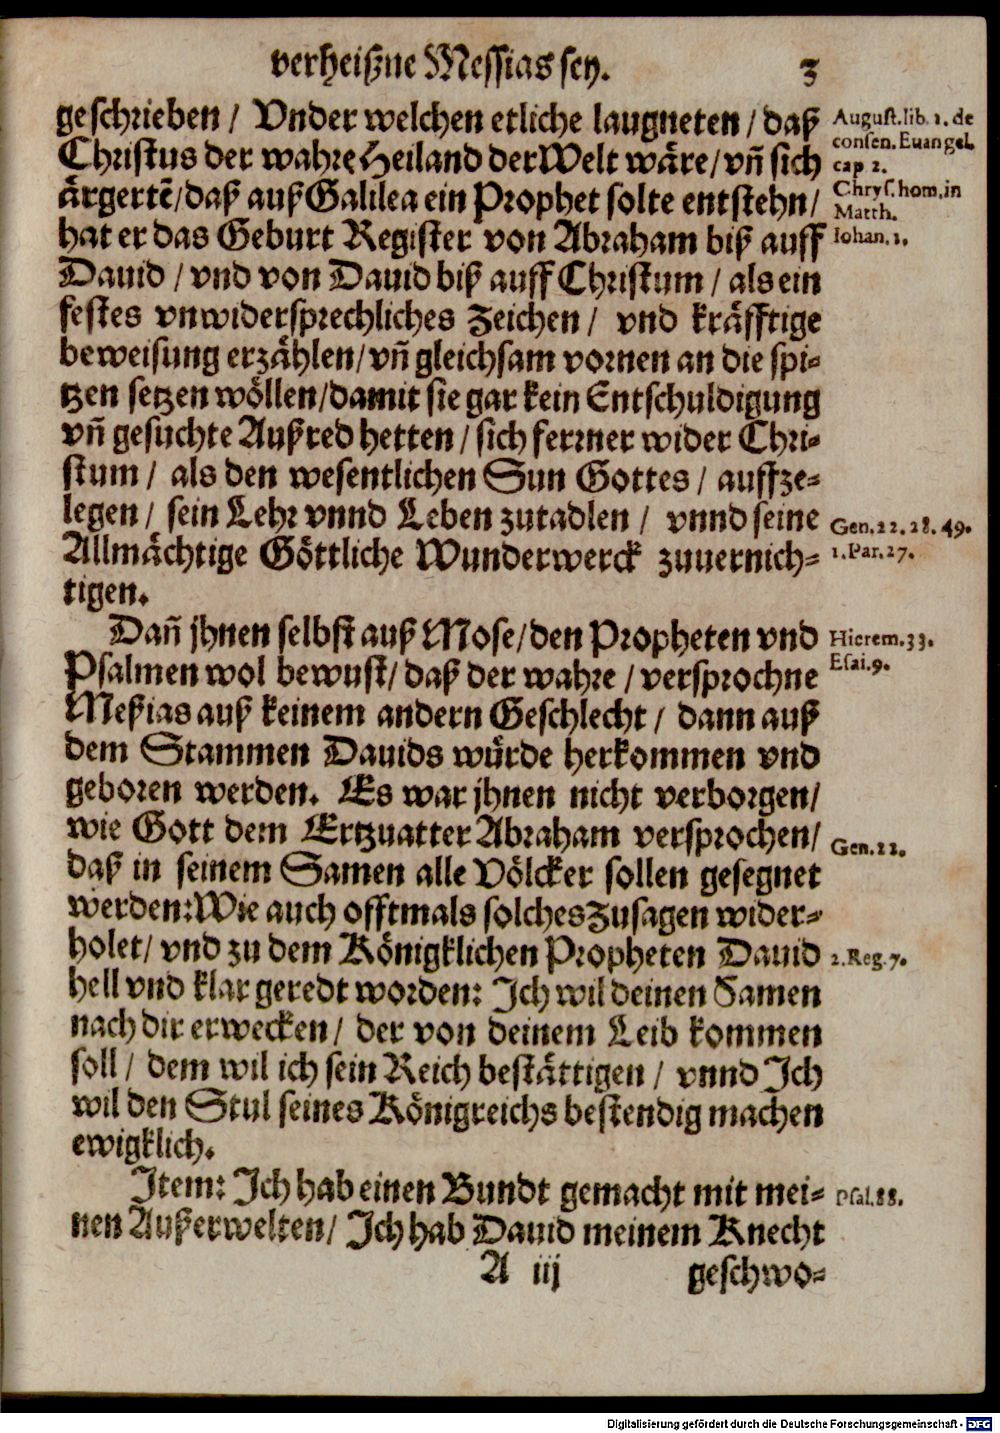 verheißne Messias sey. 3
geschrieben / Vnder welchen etliche laugneten / daß
Christus der wahre Heiland der Welt wäre / vñ sich
ärgertẽ / daß auß Galilea ein Prophet solte entstehn /
hat er das Geburt Register von Abraham biß auff
Dauid / vnd von Dauid biß auff Christum / als ein
festes vnwidersprechliches Zeichen / vnd kräfftige
beweisung erzählen / vñ gleichsam vornen an die spi-
tzen setzen wöllen / damit sie gar kein Entschuldigung
vñ gesuchte Außred hetten / sich ferrner wider Chri-
stum / als den wesentlichen Sun Gottes / auffze-
legen / sein Lehr vnnd Leben zutadlen / vnnd seine
Allmächtige Göttliche Wunderwerck zuuernich-
tigen.
Dañ jhnen selbst auß Mose / den Propheten vnd
Psalmen wol bewust / daß der wahre / versprochne
Meßias auß keinem andern Geschlecht / dann auß
dem Stammen Dauids würde herkommen vnd
geboren werden. Es war jhnen nicht verborgen /
wie Gott dem Ertzuatter Abraham versprochen /
daß in seinem Samen alle Völcker sollen gesegnet
werden: Wie auch offtmals solches Zusagen wider-
holet / vnd zu dem Königklichen Propheten Dauid
hell vnd klar geredt worden: Ich wil deinen Samen
nach dir erwecken / der von deinem Leib kommen
soll / dem wil ich sein Reich bestättigen / vnnd Ich
wil den Stul seines Königreichs bestendig machen
ewigklich.
Item: Ich hab einen Bundt gemacht mit mei-
nen Außerwelten / Ich hab Dauid meinem Knecht
A iij geschwo-
August. lib. 1. de
consen. Euangel.
cap 2.
Chrys. hom. in
Matth.
Iohan. 1.
Gen. 22. 28. 49.
1. Par. 27.
Hierem. 33.
Esai. 9.
Gen. 22.
2. Reg. 7.
Psal. 88.
Digitalisierung gefördert durch die Deutsche Forschungsgemeinschaft - DFG